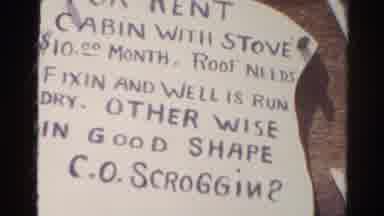 OR RENT
CABIN WITH STOVE
$10.00 MONTH. ROOF NEEDS
FIXIN AND WELL IS RUN
DRY. OTHER WISE
IN GOOD SHAPE
C.O. SCROGGINS